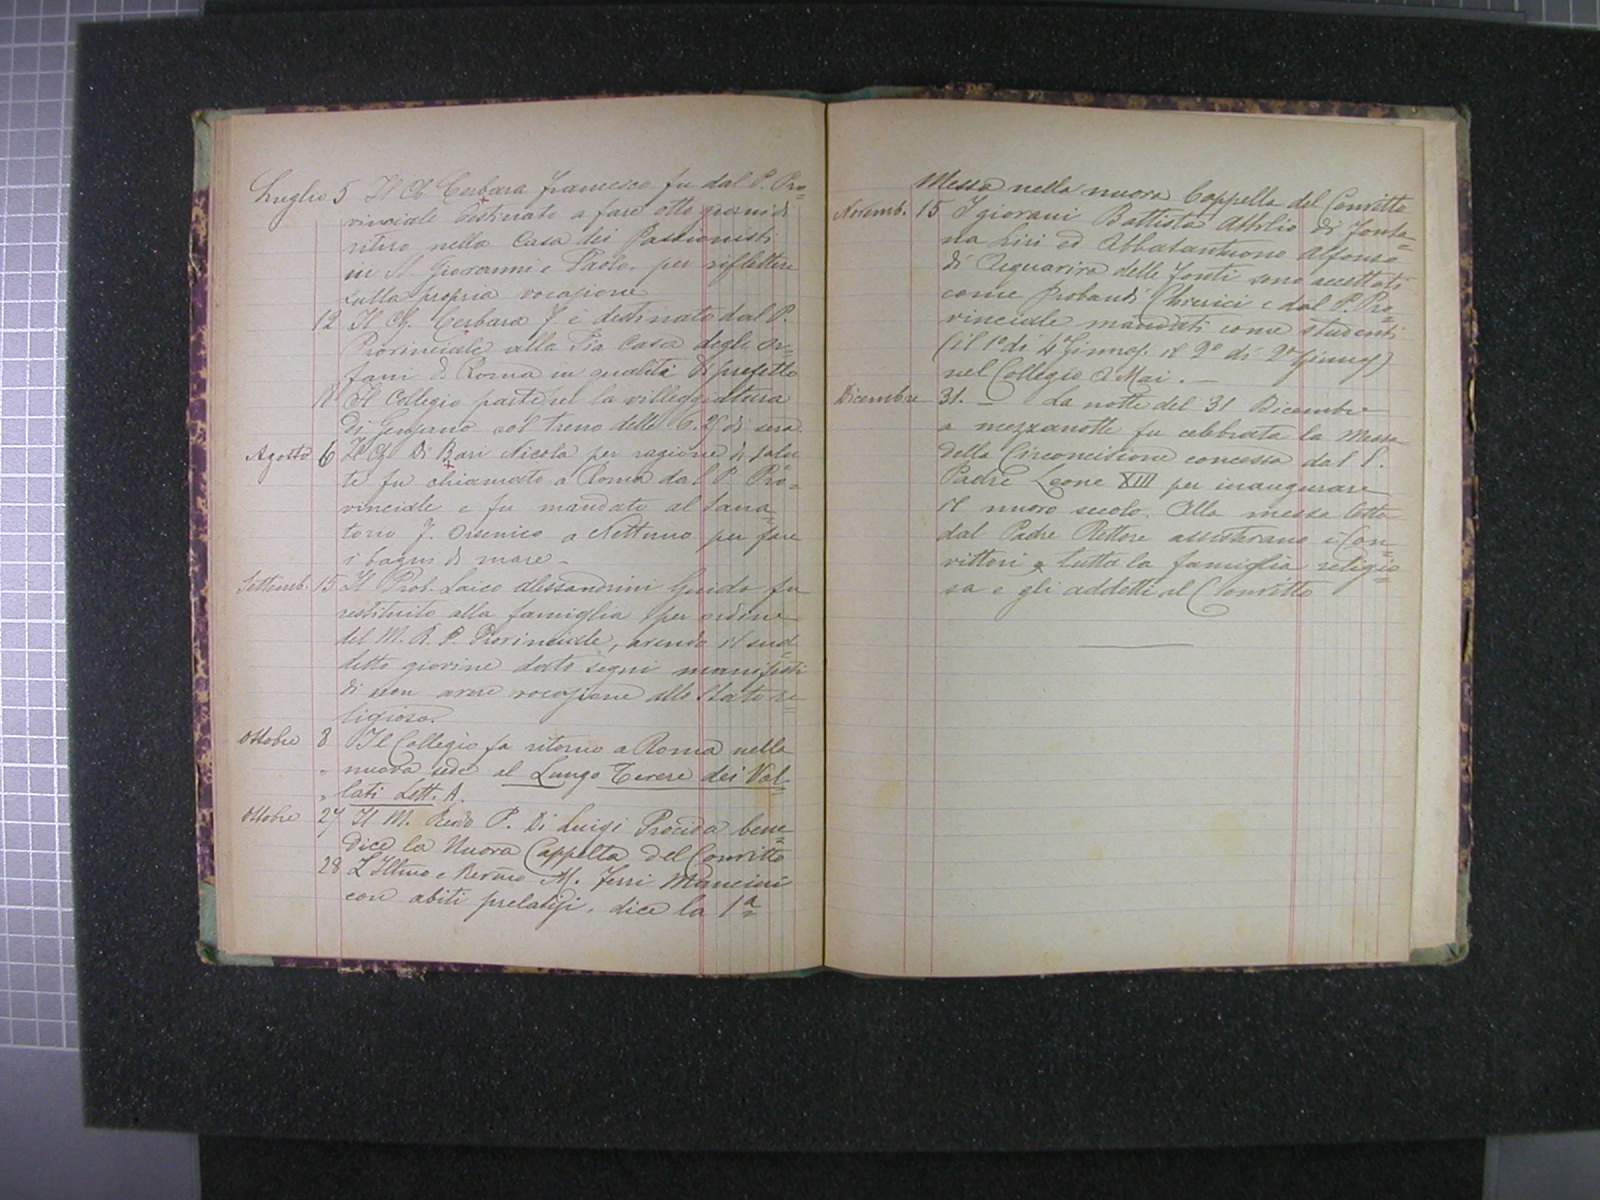 Luglio 5 Il Ch. Cerbara Francesco fu dal P. Pro=
vinciale destinato a fare otto giorni di
ritiro nella Casa dei Passionisti
in S. Giovanni e Paolo, per riflettere
sulla propria vocazione
12 Il Ch. Cerbara F. è destinato dal P.
Provinciale alla Pia Casa degli Or=
fani di Roma in qualità di prefetto
Il Collegio parte per la villeggiatura
di Genzano col treno delle 6.25 di sera.
Agosto 6 Il Ch. Di Bari Nicola per ragione di salu
te fu chiamato a Roma dal P. Pro=
vinciale e fu mandato al Sana
torio F. Orsenico a Nettuno per fare
i bagni di mare _
Settemb. 15 Il Prob. Laico Alessandrini Guido fu
restituito alla famiglia per ordine
del M. R. P. Provinciale, avendo il sud=
detto giovine dato segni manifesti
di non avere vocazione allo Stato re=
ligioso.
Ottobre 8 Il Collegio fa ritorno a Roma nella
" nuova sede al Lungo Tevere dei Val=
" lati Lett. A.
Ottobre 27 Il M. Revdo P. Di Luigi Procida bene=
dice la Nuova Cappella del Convitto
28 L'Illmo e Revmo M. Ferri Mancini
con abiti prelatizi, dice la 1ª
Messa nella nuova Cappella del Convitto
Novemb. 15 I giovani Battista Attilio di Fonta=
na Liri ed Abbatantuono Alfonso
di Acquaviva delle Fonti sono accettati
come Probandi Chierici e dal P. Pro=
vinciale mandati come studenti
(il 1º di 4ª Ginnas. il 2º di 2ª Ginnas)
nel Collegio A. Mai. _
Dicembre 31. _ La notte del 31 Dicembre
a mezzanotte fu celebrata la Messa
della Circoncisione concessa dal S.
Padre Leone XIII per inaugurare
il nuovo secolo. Alla messa letta
dal Padre Rettore assisterano i Con=
vittori, tutta la famiglia religio=
sa e gli addetti al Convitto